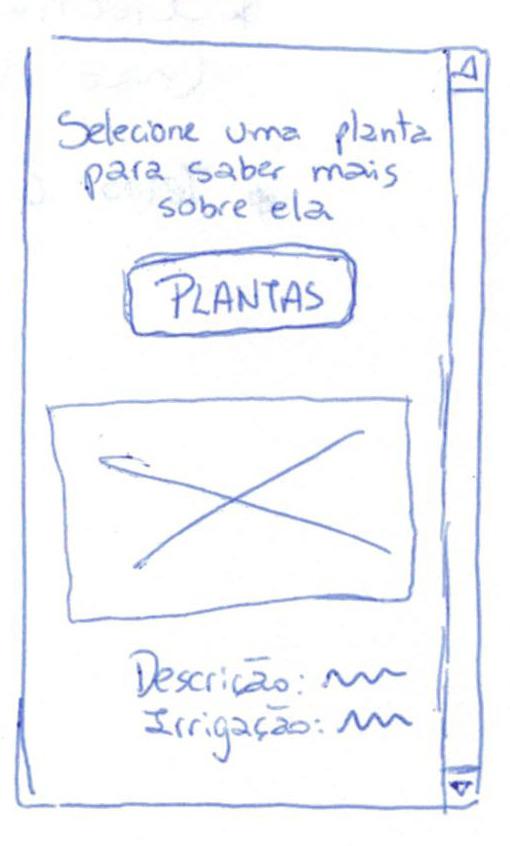 Selecione uma planta
para saber mais
sobre ela
PLANTAS
Descrição:
Irrigação: